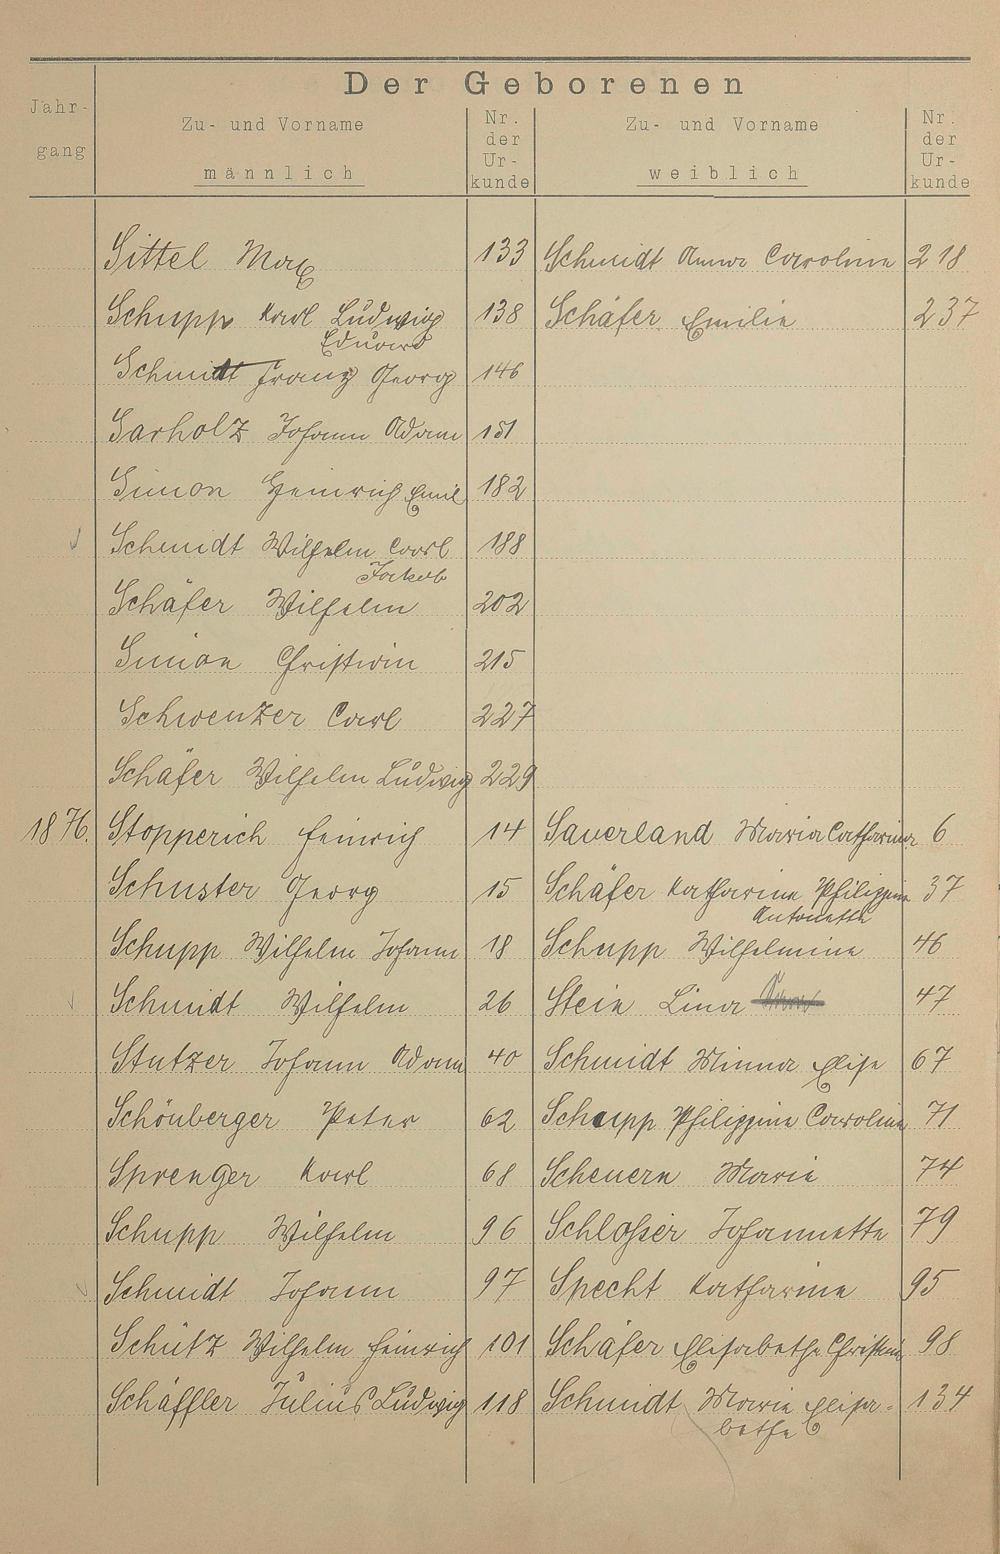 Der Geborenen
Jahr-
gang
Zu- und Vorname
männlich
Nr.
der
Ur-
kunde
Zu- und Vorname
weiblich
Nr.
der
Ur-
kunde
Sittel Max 133 Schmidt Anna Caroline 218
Schupp Karl Ludwig 138 Schäfer Emilie 237
Eduard
Schmidt Franz Georg 146
Sarholz Johann Adam 151
Simon Heinrich Emil 182
Schmidt Wilhelm Carl 188
Jakob
Schäfer Wilhelm 202
Simon Christian 215
Schwenzer Carl 227
Schäfer Wilhelm Ludwig 229
1876. Stopperich Heinrich 14 Sauerland Maria Catharina 6
Schuster Georg 15 Schäfer Katharine Philippine 37
Antonette
Schupp Wilhelm Johann 18 Schupp Wilhelmine 46
Schmidt Wilhelm 26 Stein Lina 47
Stutzer Johann Adam 40 Schmidt Minna Elise 67
Schönberger Peter 62 Schupp Philippine Caroline 71
Sprenger Karl 68 Scheuern Marie 74
Schupp Wilhelm 96 Schloßer Johannette 79
Schmidt Johann 97 Specht Katharine 95
Schütz Wilhelm Heinrich 101 Schäfer Elisabethe Christine 98
Schäffler Julius Ludwig 118 Schmidt Marie Elisa- 134
bethe